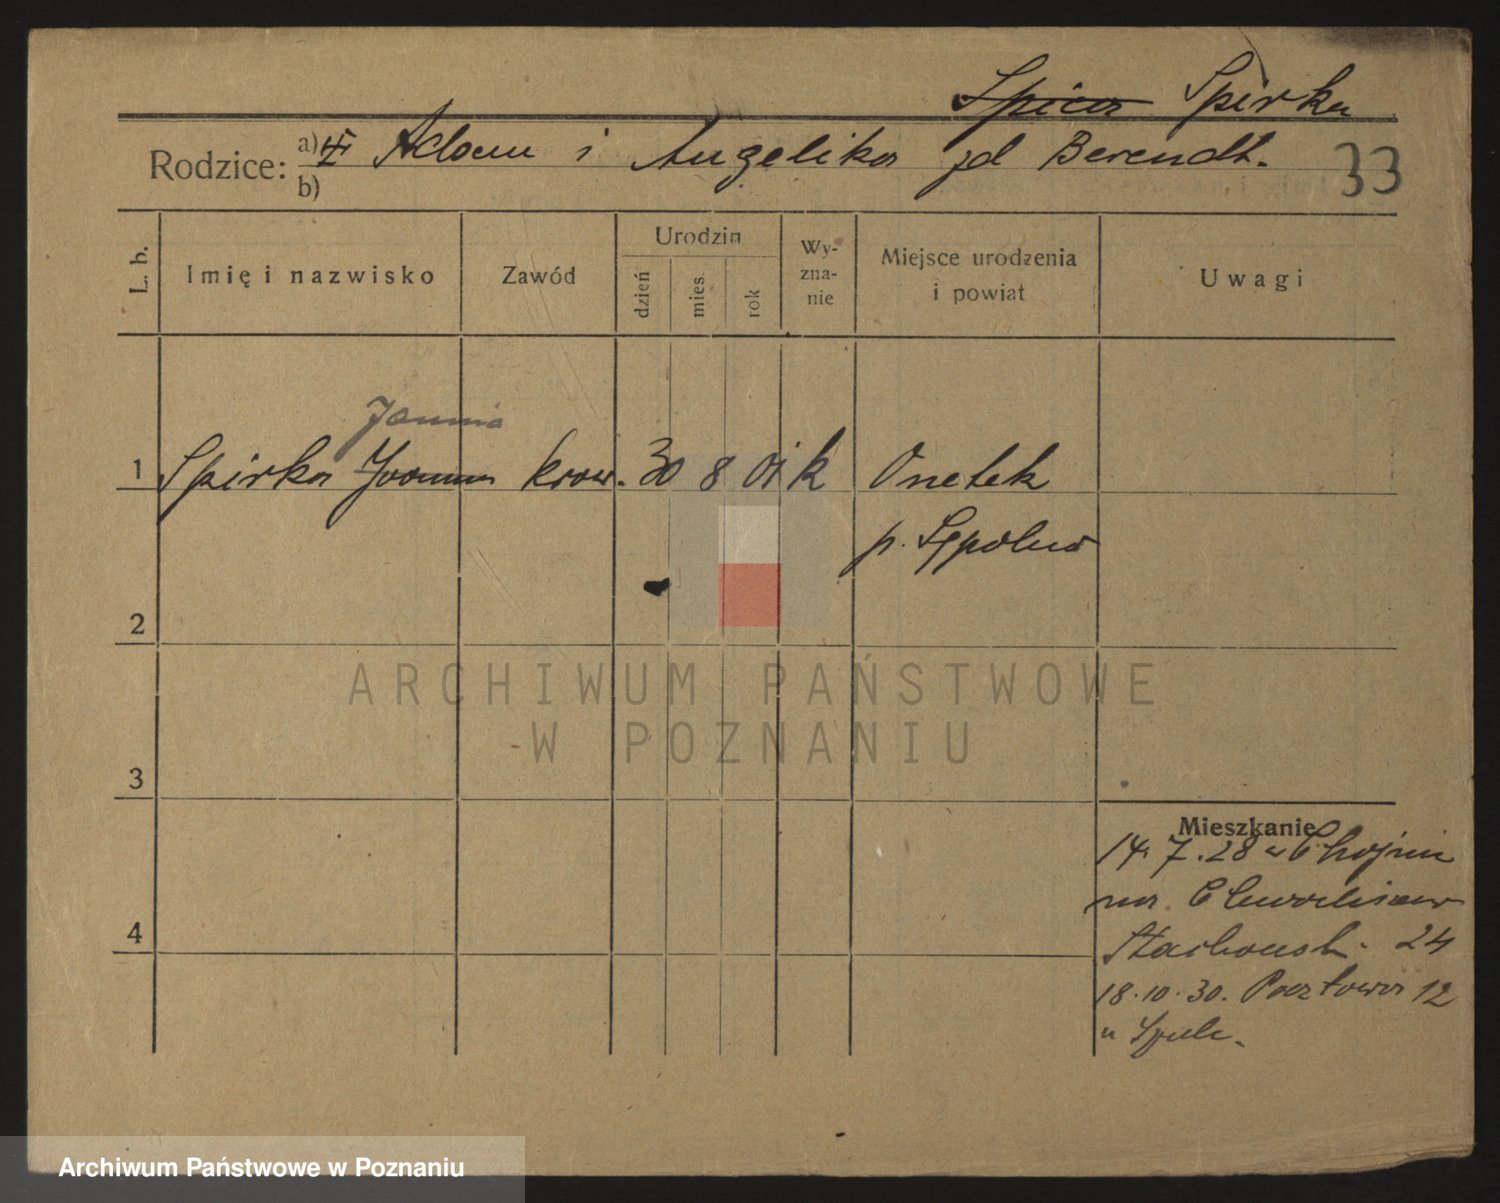 Spira Spirka
Rodzice: a) Adam i Angelika zd Berendt.
b)
33
L. b.
Imię i nazwisko
Zawód
Urodzin
dzień
mies.
rok
Wy-
zna-
nie
Miejsce urodzenia
i powiat
Uwagi
Janina
1 Spirka Joanna kraw. 30 8 01 k Onetek
p. Sępolno
2
3
4
Mieszkanie
14.7.28 w Chojni
Stachowsk. 24
18.10.30. Pocztowa 12
u
ARCHIWUM PAŃSTWOWE
W POZNANIU
Archiwum Państwowe w Poznaniu